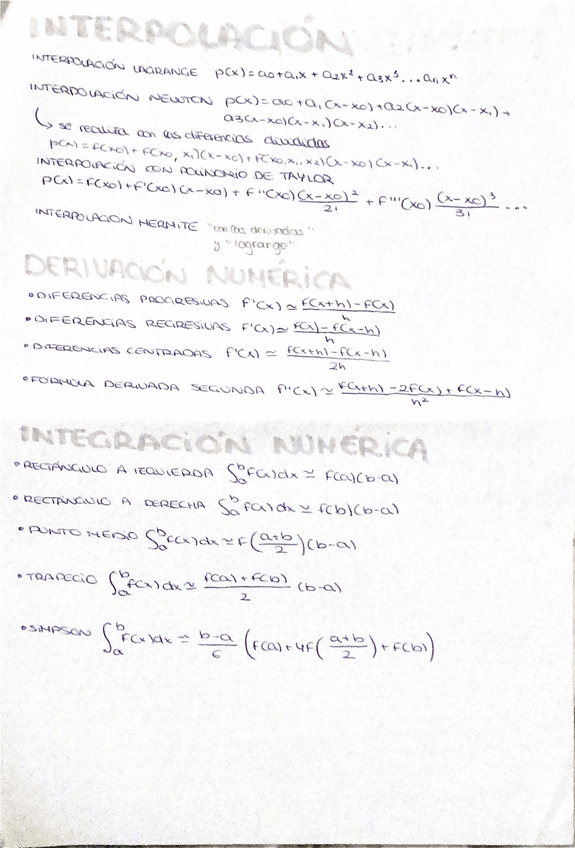 INTERPOLACIÓN
INTERPOLACIÓN LAGRANGE p(x) = a0 + a1x + a2x² + a3x³ ... anxⁿ
INTERPOLACIÓN NEWTON p(x) = a0 + a1(x-x0) + a2(x-x0)(x-x1) +
a3(x-x0)(x-x1)(x-x2)...
↳ se realiza con las diferencias divididas
p(x) = f(x0) + f(x0, x1)(x-x0) + f(x0, x1, x2)(x-x0)(x-x1)...
INTERPOLACIÓN CON POLINOMIO DE TAYLOR
p(x) = f(x0) + f'(x0)(x-x0) + f''(x0) (x-x0)²/2! + f'''(x0) (x-x0)³/3! ...
INTERPOLACION HERMITE "con las derivadas"
y "lagrange"
DERIVACIÓN NUMÉRICA
• DIFERENCIAS PROGRESIVAS f'(x) ≃ f(x+h)-f(x)/h
• DIFERENCIAS REGRESIVAS f'(x) ≃ f(x)-f(x-h)/h
• DIFERENCIAS CENTRADAS f'(x) ≃ f(x+h)-f(x-h)/2h
• FÓRMULA DERIVADA SEGUNDA f''(x) ≃ f(x+h)-2f(x)+f(x-h)/h²
INTEGRACIÓN NUMÉRICA
• RECTÁNGULO A IZQUIERDA ∫ₐᵇ f(x)dx ≃ f(a)(b-a)
• RECTÁNGULO A DERECHA ∫ₐᵇ f(x)dx ≃ f(b)(b-a)
• PUNTO MEDIO ∫ₐᵇ f(x)dx ≃ f((a+b)/2)(b-a)
• TRAPECIO ∫ₐᵇ f(x)dx ≃ f(a)+f(b)/2 (b-a)
• SIMPSON ∫ₐᵇ f(x)dx ≃ b-a/6 (f(a)+4f((a+b)/2)+f(b))